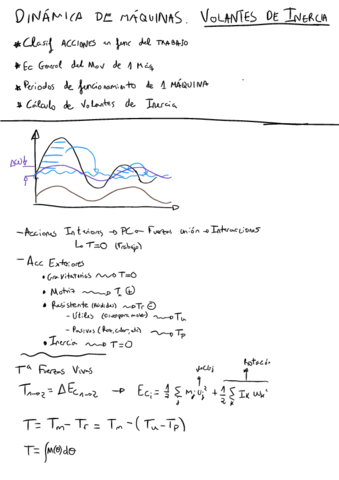 DINÁMICA DE MÁQUINAS. VOLANTES DE INERCIA
* Clasif ACCIONES en func del TRABAJO
* Ec General del Mov de 1 Máq
* Periodos de funcionamiento de 1 MÁQUINA
* Cálculo de Volantes de Inercia
- Acciones Interiores → PC - Fuerzas unión → Interacciones
↳ T=0 (Trabajo)
- Acc Exteriores
• Gravitatorias ⇝ T=0
• Motriz ⇝ Tm (+)
• Resistente ⇝ Tr (-)
- Útiles ⇝ Tu
- Pasivas ⇝ Tp
• Inercia ⇝ T=0
Tª Fuerzas Vivas
Rotación
T1→2 = ΔEc1→2 → Eci = 1/2 Σ mj vj² + 1/2 Σ Ik ωk²
T = Tm - Tr = Tm - (Tu - Tp)
T = ∫M(θ)dθ